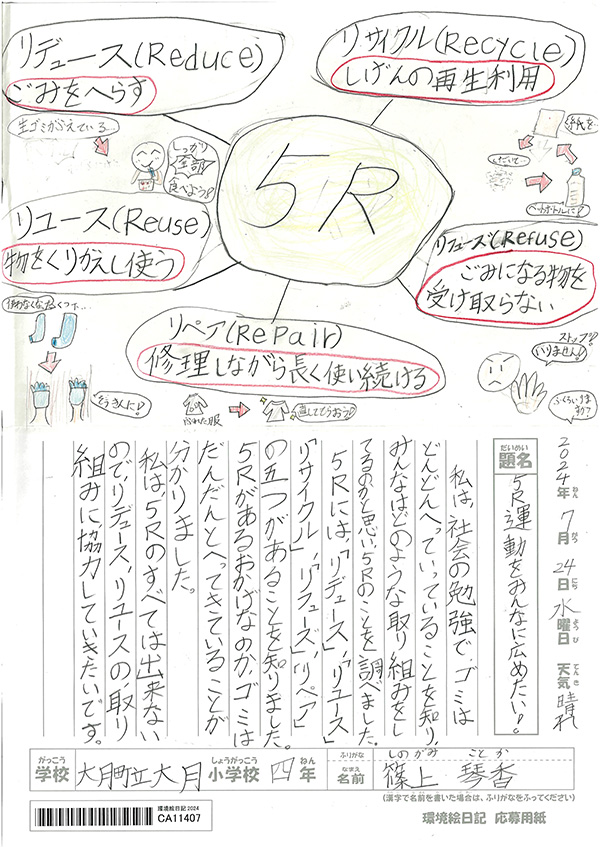 リデュース(Reduce)
ごみをへらす
リサイクル(Recycle)
しげんの再生利用
生ゴミがふえている…
しっかり
全部
食べよう!
5R
紙を…
くだいて…
ペットボトルに!
リユース(Reuse)
物をくりかえし使う
リフューズ(Refuse)
ごみになる物を
受け取らない
使わなくなったくつ下…
ぞうきんに!
リペア(RePair)
修理しながら長く使い続ける
やぶれた服
直してつかおう
ストップ!
いりません!
ふくろいりま
すか?
2024年ねん 7月がつ 24日にち 水曜日ようび 天気てんき 晴れ
題名だいめい 5R運動をみんなに広めたい!
私は、社会の勉強で、ゴミは
どんどんへっていっていることを知り、
みんなはどのような取り組みをし
てるのかと思い5Rのことを調べました。
5Rには、「リデュース」、「リユース」
「リサイクル」、「リフューズ」、「リペア」
の五つがあることを知りました。
5Rがあるおかげなのか、ゴミは
だんだんとへってきていることが
分かりました。
私は、5Rのすべては出来ない
ので、リデュース、リユースの取り
組みに、協力していきたいです。
がっこう しょうがっこう ねん ふりがな しのがみ ことか
学校 大月町立大月 小学校 四 年 なまえ 名前 篠上 琴香
(漢字で名前を書いた場合は、ふりがなをふってください)
環境絵日記 2024
CA11407
環境絵日記 応募用紙